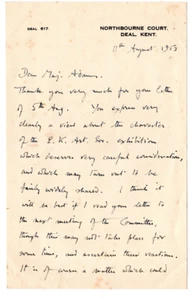 DEAL 617.
NORTHBOURNE COURT,
DEAL, KENT.
11th August 1953
Dear Maj. Adams,
Thank you very much for your letter
of 5th Aug. You express very
clearly a view about the character
of the E.K. Art Soc. exhibition
which deserves very careful consideration,
and which may turn out to be
fairly widely shared. I think it
will be best if I read your letter to
the next meeting of the Committee,
though this may not take place for
some time, and ascertain their reactions.
It is of course a matter which could